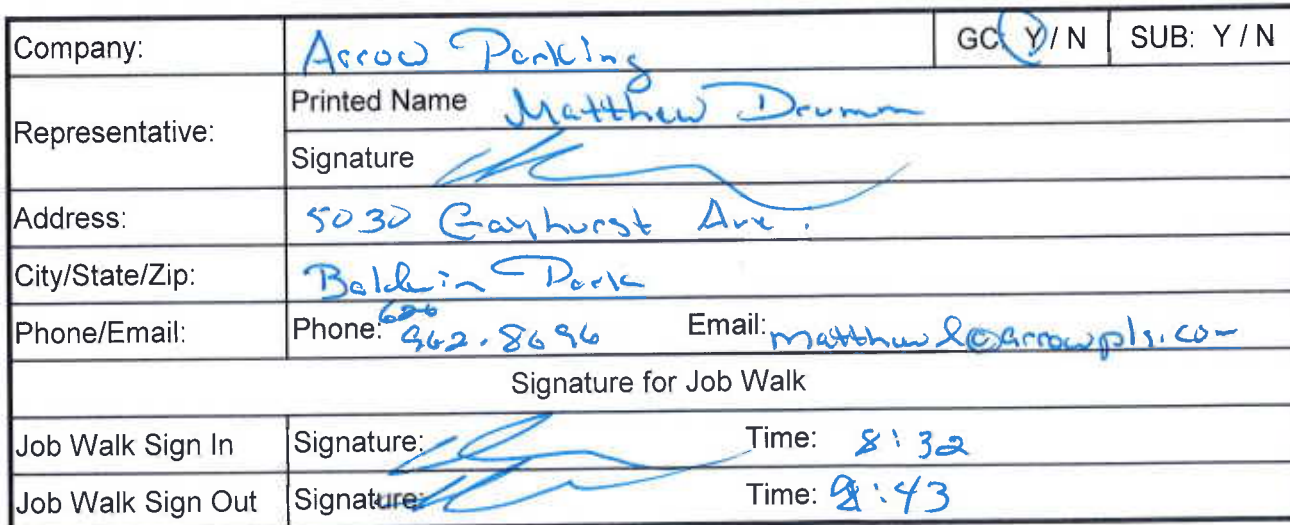 Company: Arrow Parking GC: Y / N SUB: Y / N
Representative: Printed Name Matthew Drumm
Signature
Address: 5030 Gayhurst Ave.
City/State/Zip: Baldwin Park
Phone/Email: Phone: 626 962.8696 Email: matthewd@arrowpls.com
Signature for Job Walk
Job Walk Sign In Signature: Time: 8:32
Job Walk Sign Out Signature: Time: :43